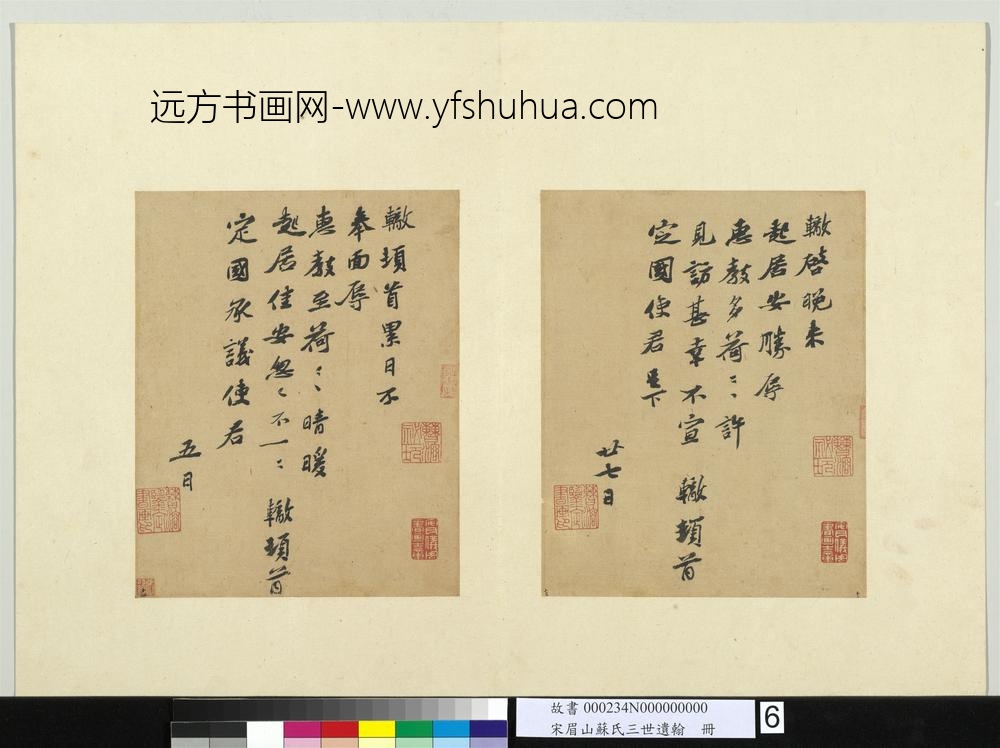 远方书画网-www.yfshuhua.com
轍啓晚來
起居安勝辱
惠教多荷〻許
見訪甚幸不宣 轍頓首
定國使君
廿七日
轍頓首累日不
奉面辱
惠教至荷〻晴暖
起居佳安忽〻不一〻 轍頓首
定國承議使君
五日
故書 000234N000000000
宋眉山蘇氏三世遺翰 冊
6